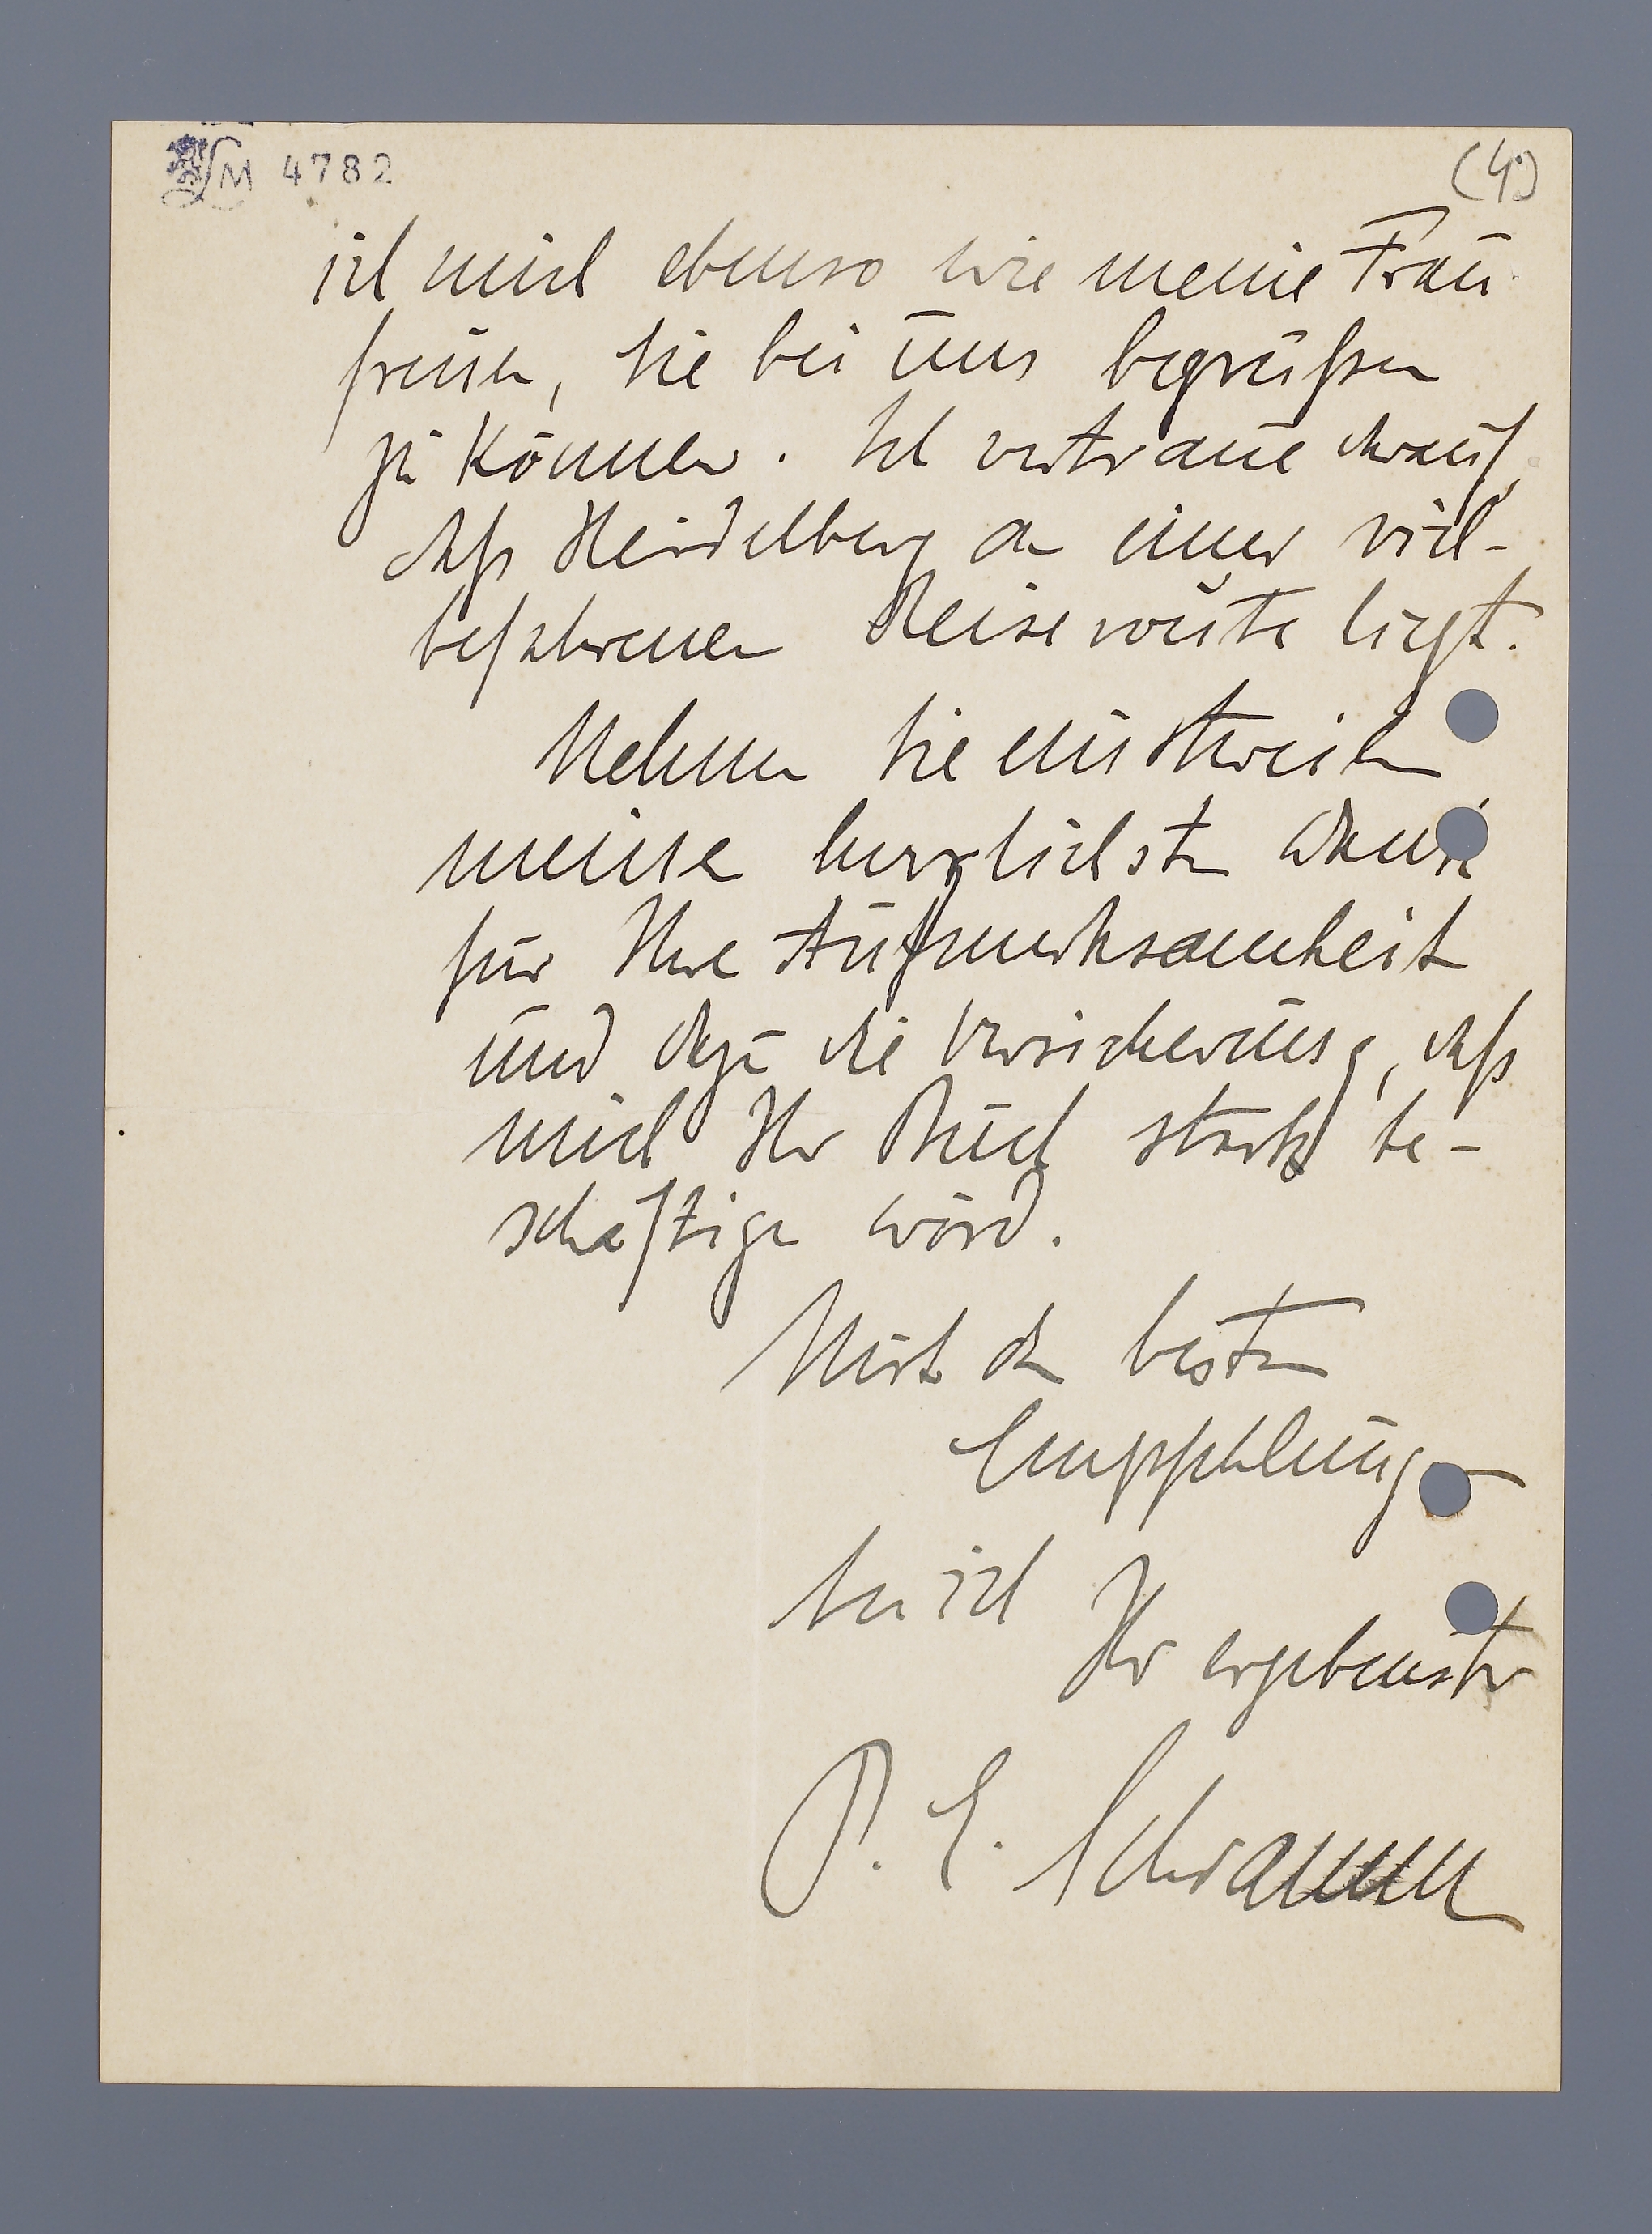 M 4782
(4)
ich mich ebenso wie meine Frau
freuen, Sie bei uns begrüßen
zu können. Ich vertraue darauf,
daß Heidelberg an einer viel-
befahrenen Reiseroute liegt.
Nehmen Sie einstweilen
meinen herzlichsten Dank
für Ihre Aufmerksamkeit
und dazu die Versicherung, daß
mich Ihr Buch stark be-
schäftigen wird.
Mit den besten
Empfehlungen
bin ich
Ihr ergebenster
P. E. Schramm